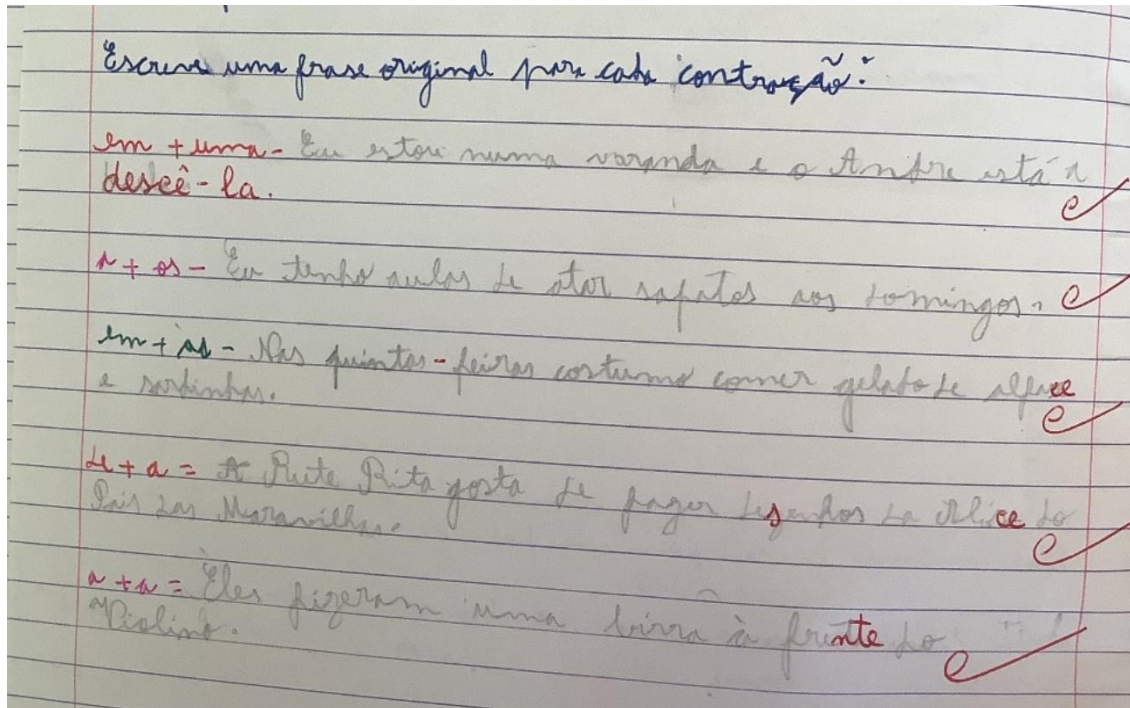 Escreve uma frase original para cada contração:
em + uma - Eu estou numa varanda e o André está a
descê-la.
a + os - Eu tenho aulas de atar sapatos aos domingos.
em + as - Nas quintas-feiras costumo comer gelato de alface
e sardinhas.
de + a = A Rute Rita gosta de fazer desenhos da Alice do
País das Maravilhas.
a + a = Eles fizeram uma birra à frente do
Violino.